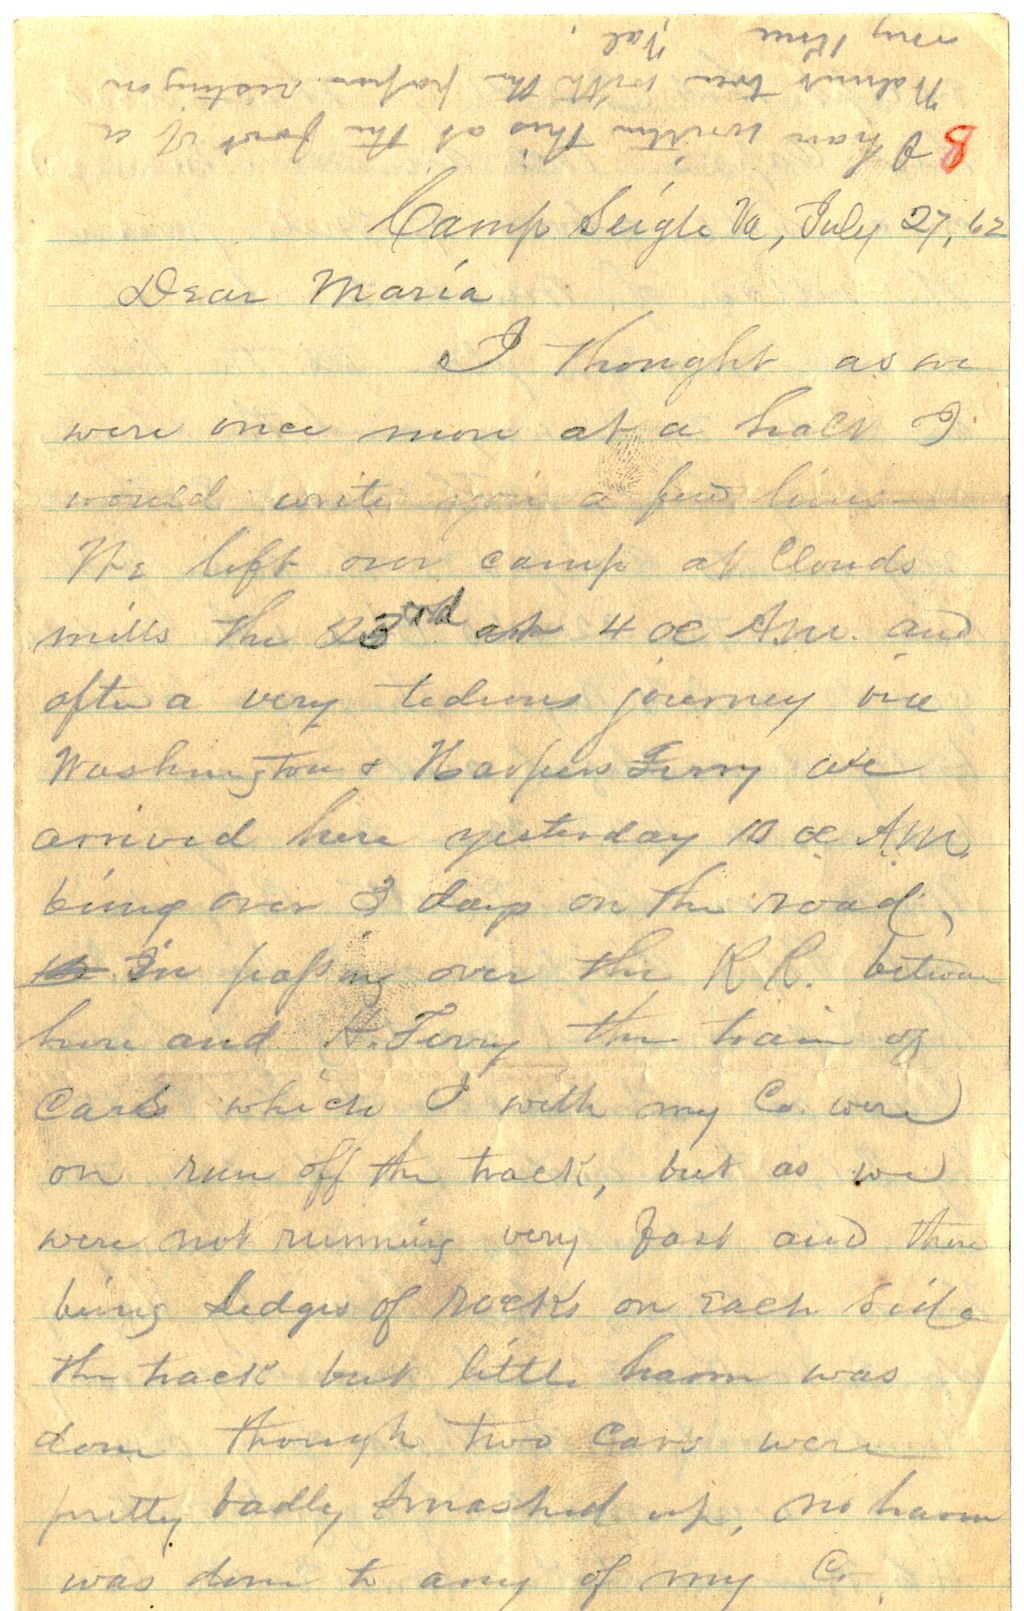 I have written this at the foot of a
Walnut tree with the paper resting on
my knee Val.
8
Camp Seigle Va, July 27, 62
Dear Maria
I thought as we
were once more at a halt I
would write you a few lines
We left our camp at Clouds
mills the 23rd at 4 oc A.M. and
after a very tedious journey via
Washington & Harpers Ferry we
arrived here yesterday 10 oc A.M.
being over 3 days on the road,
In passing over the R R. between
here and H. Ferry the train of
Cars which I with my Co. were
on run off the track, but as we
were not running very fast and there
being Ledges of rocks on each side
the track but little harm was
done though two cars were
pretty badly smashed up, no harm
was done to any of my Co.